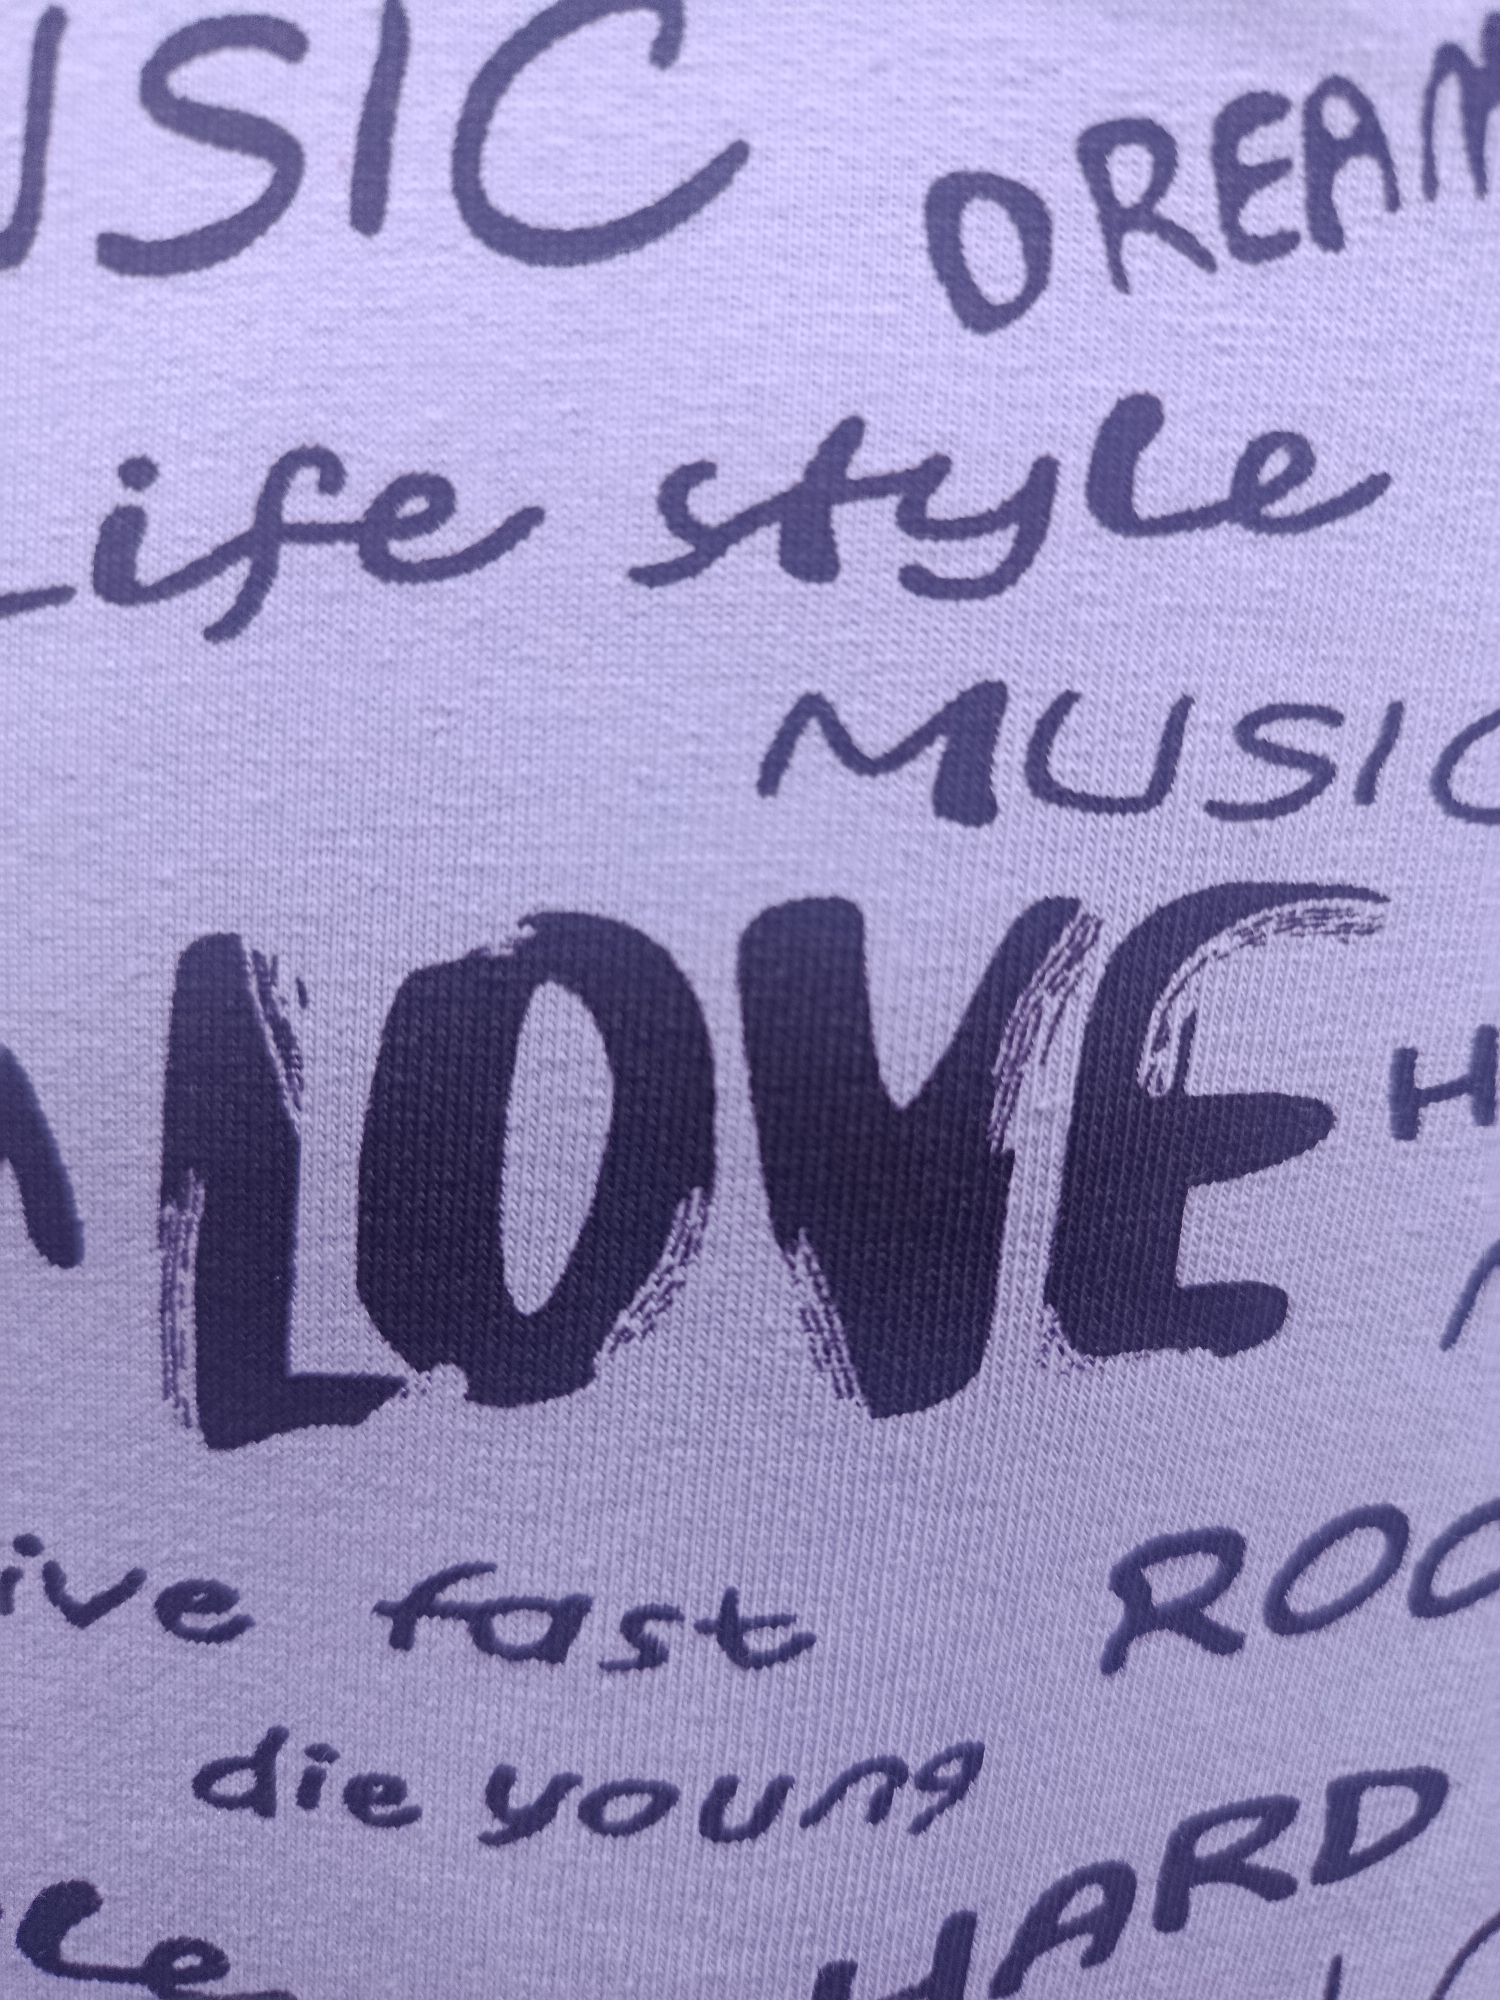 USIC
DREAM
Life style
MUSIC
LOVE
H
ive fast
ROC
die young
HARD
le